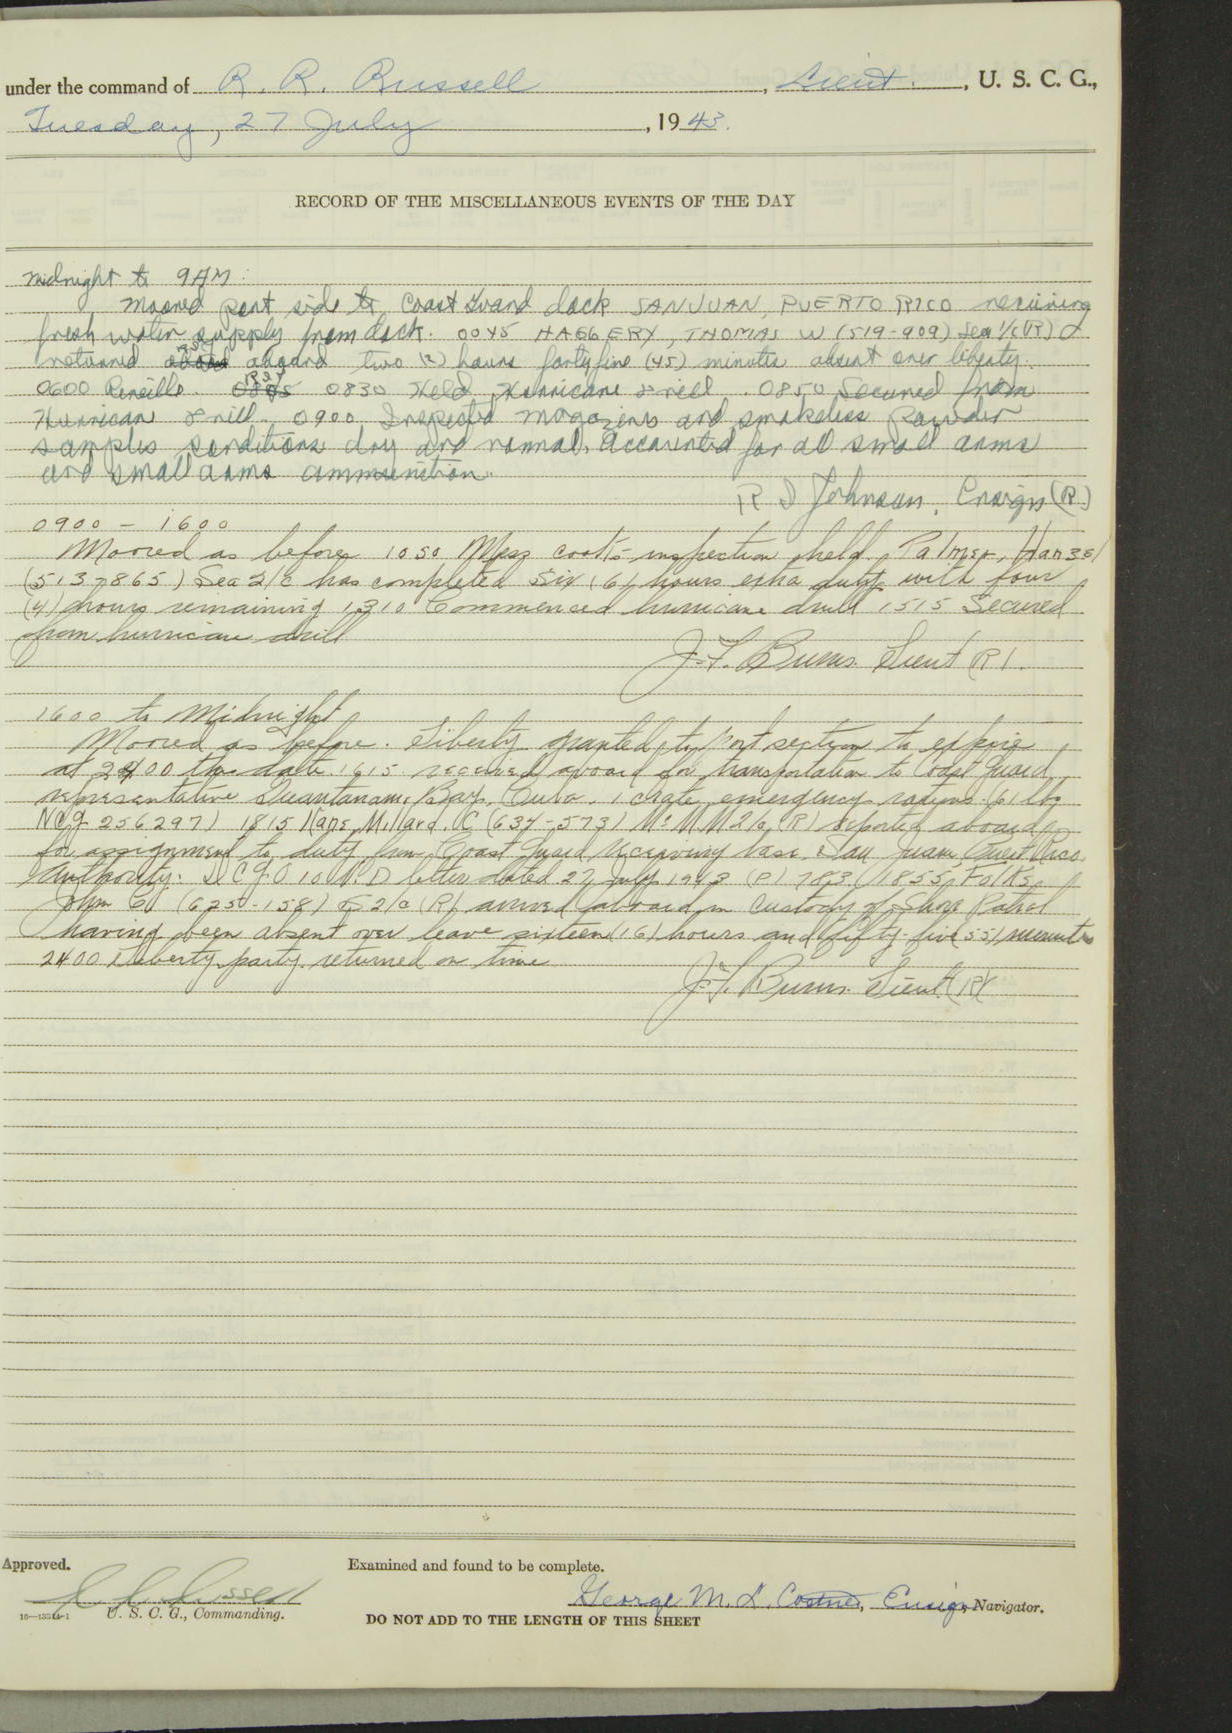 under the command of R. R. Russell, Lieut., U. S. C. G.,
Tuesday, 27 July, 1943.
RECORD OF THE MISCELLANEOUS EVENTS OF THE DAY
Midnight to 9AM:
Moored port side to Coast Guard dock SAN JUAN, PUERTO RICO receiving
fresh water supply from dock. 0045 HAGGERY, THOMAS W (519-909) Sea 1/c (R)
returned aboard two (2) hours forty five (45) minutes absent over liberty.
0600 Reveille. 0830 Held Hurricane drill. 0850 Secured from
Hurricane drill. 0900 Inspected magazines and smokeless powder
samples conditions dry and normal. Accounted for all small arms
and small arms ammunition.
R D Johnson, Ensign (R)
0900 - 1600
Moored as before 1050 Mess cook's inspection held. Palmer, Hansel
(513-865) Sea 2/c has completed six (6) hours extra duty with four
(4) hours remaining 1310 Commenced hurricane drill 1515 Secured
from hurricane drill
J. F. Burns. Lieut (R).
1600 to Midnight
Moored as before. Liberty granted to port section to expire
at 2400 this date. 1615 received aboard for transportation to Coast Guard
representative Guantanamo Bay, Cuba. 1 crate emergency rations (61 lbs
NCG 256297) 1815 Millard. C (634-573) M 2/c (R) reported aboard
for assignment to duty from Coast Guard receiving base, San Juan Puerto Rico
Authority: DCGO 10 N.D letter dated 27 July 1943 (P) 783. 1855 Folks,
John (6250-158) 2/c (R) arrived aboard in custody of Shore Patrol
having been absent over leave sixteen (16) hours and fifty-five (55) minutes
2400 Liberty party returned on time
J. F. Burns. Lieut (R)
Approved. Examined and found to be complete.
George M. L. Costner, Ensign, Navigator.
U. S. C. G., Commanding.
DO NOT ADD TO THE LENGTH OF THIS SHEET